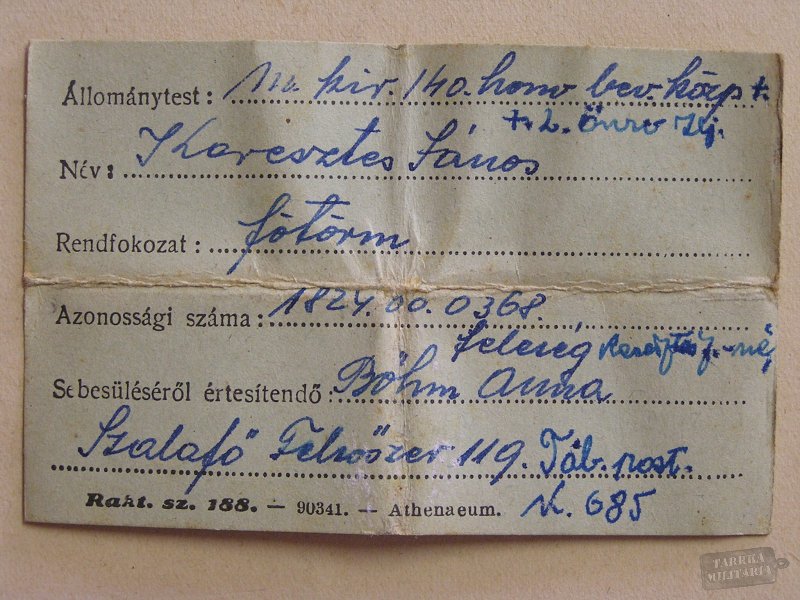 Állománytest: m. kir. 140. honv bev. közp t.
t. L. Önv
Név: Keresztes János
Rendfokozat: főtörm
Azonossági száma: 1824.00.0368.
feleség -né,
Sebesüléséről értesítendő: Bőhm Anna
Szalafő Felsőszer 119. Táb. post.
Rakt. sz. 188. — 90341. — Athenaeum. 685
TARRKA
MILITARIA